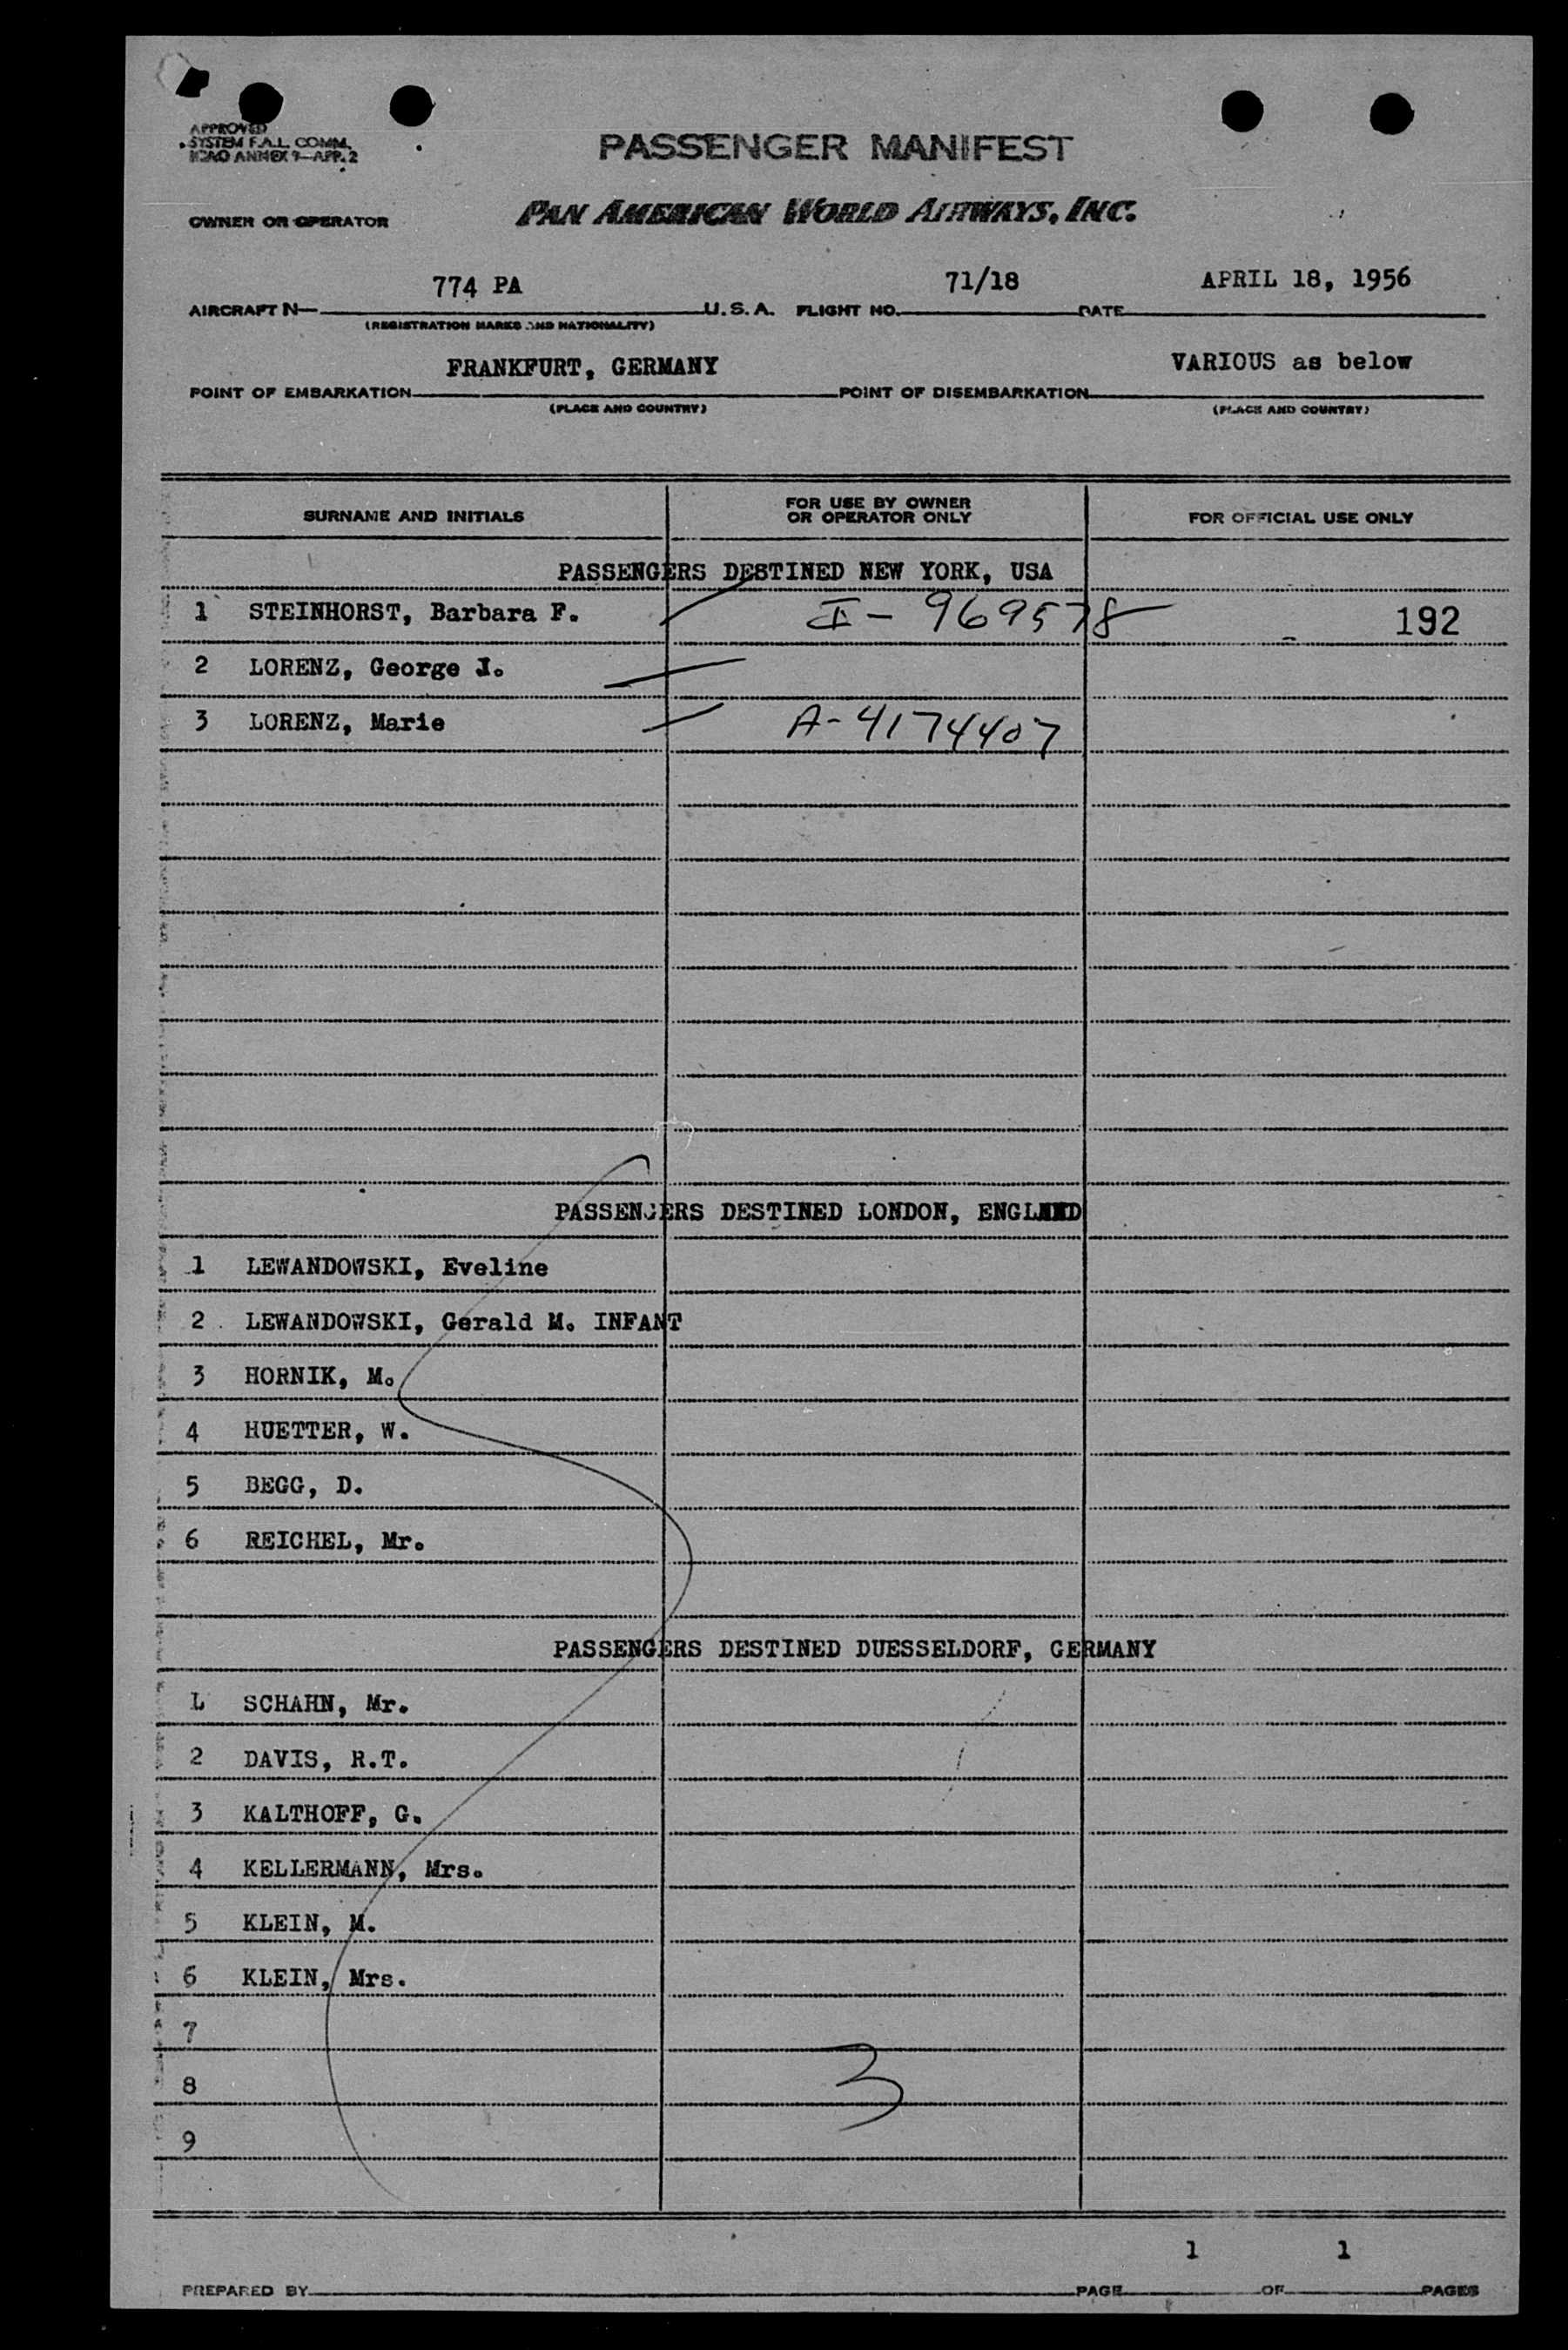 APPROVED
SYSTEM F.A.L. COMM.
ICAO ANNEX 9—APP. 2
PASSENGER MANIFEST
OWNER OR OPERATOR PAN AMERICAN WORLD AIRWAYS, INC.
774 PA 71/18 APRIL 18, 1956
AIRCRAFT N— U. S. A. FLIGHT NO. DATE
(REGISTRATION MARKS AND NATIONALITY)
FRANKFURT, GERMANY VARIOUS as below
POINT OF EMBARKATION POINT OF DISEMBARKATION
(PLACE AND COUNTRY) (PLACE AND COUNTRY)
SURNAME AND INITIALS FOR USE BY OWNER OR OPERATOR ONLY FOR OFFICIAL USE ONLY
PASSENGERS DESTINED NEW YORK, USA
1 STEINHORST, Barbara F. I-969578 192
2 LORENZ, George J.
3 LORENZ, Marie A-4174407
PASSENGERS DESTINED LONDON, ENGLAND
1 LEWANDOWSKI, Eveline
2 LEWANDOWSKI, Gerald M. INFANT
3 HORNIK, M.
4 HUETTER, W.
5 BEGG, D.
6 REICHEL, Mr.
PASSENGERS DESTINED DUESSELDORF, GERMANY
L SCHAHN, Mr.
2 DAVIS, R.T.
3 KALTHOFF, G.
4 KELLERMANN, Mrs.
5 KLEIN, M.
6 KLEIN, Mrs.
7
8 3
9
1 1
PREPARED BY PAGE OF PAGES